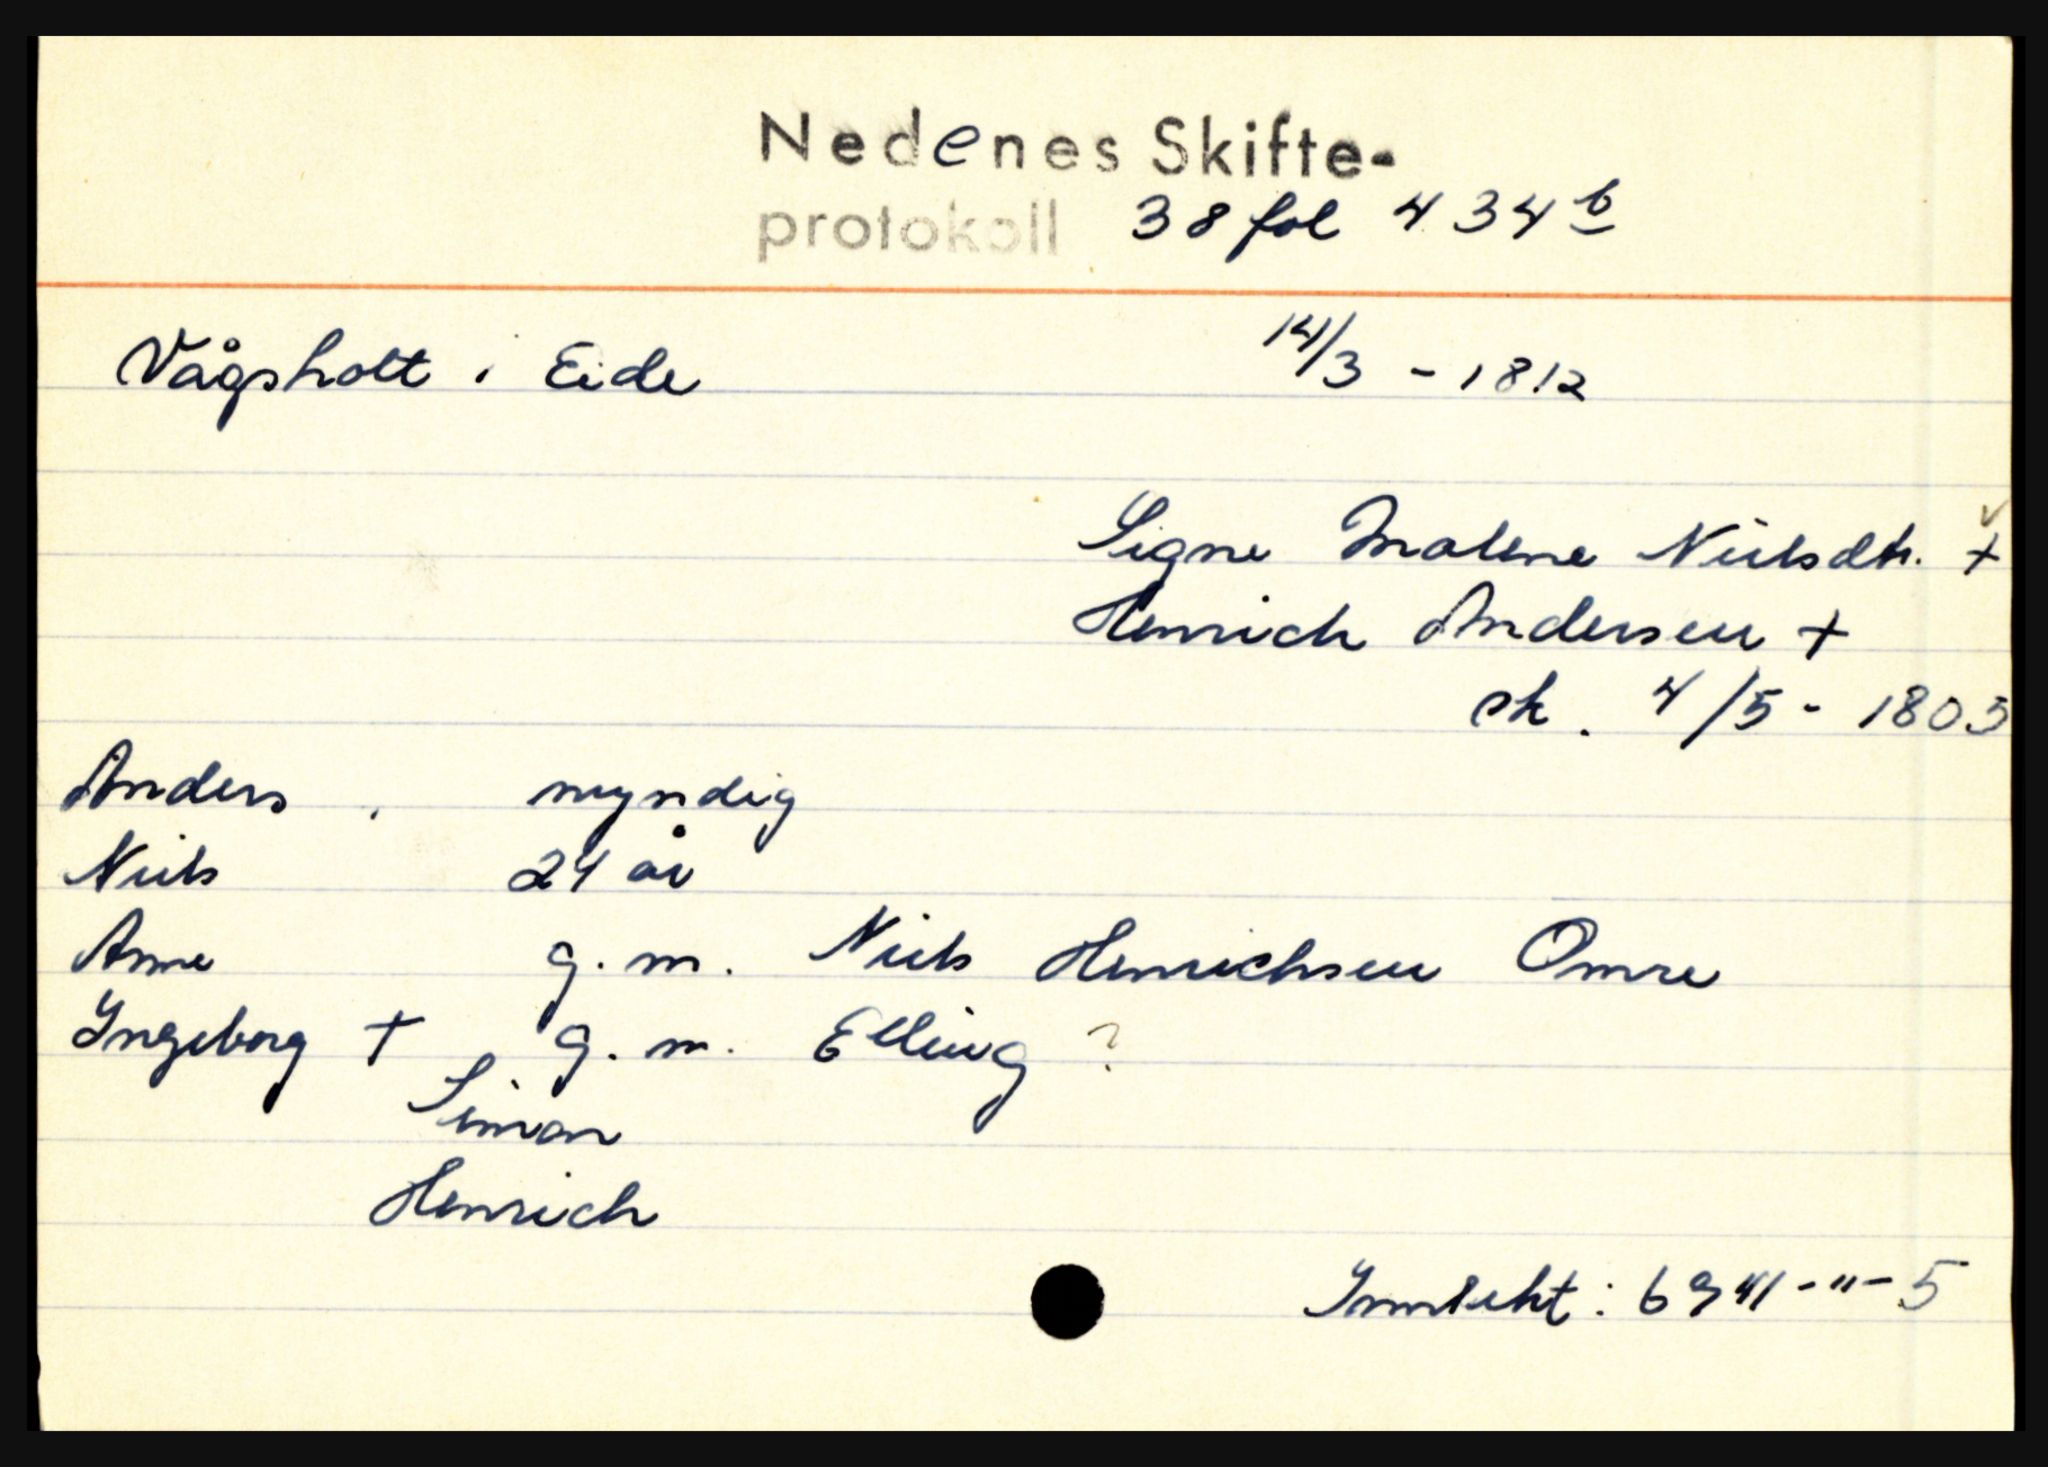 Nedenes Skifte-
protokoll 38 fol 434 b
Vågsholt i Eide 14/3 - 1812
Signe Malene Nielsdtr. +
Henrich Andersen +
sk. 4/5 - 1803
Anders, myndig
Niels 24 år
Anne g.m. Niels Henrichsen Omre
Ingeborg + g.m. Elling ?
Simon
Henrich
: 6941-"-5